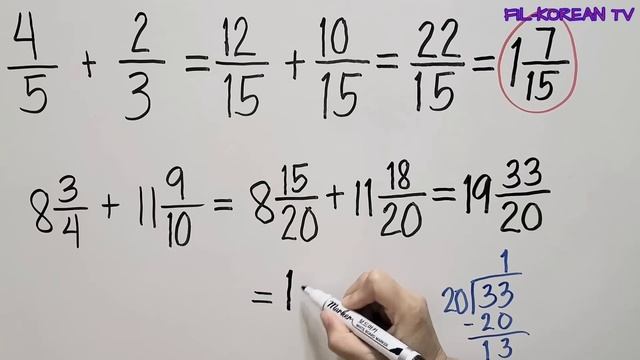 FIL-KOREAN TV
4/5 + 2/3 = 12/15 + 10/15 = 22/15 = 1 7/15
8 3/4 + 11 9/10 = 8 15/20 + 11 18/20 = 19 33/20
= 1
1
20)33
-20
13
Marker